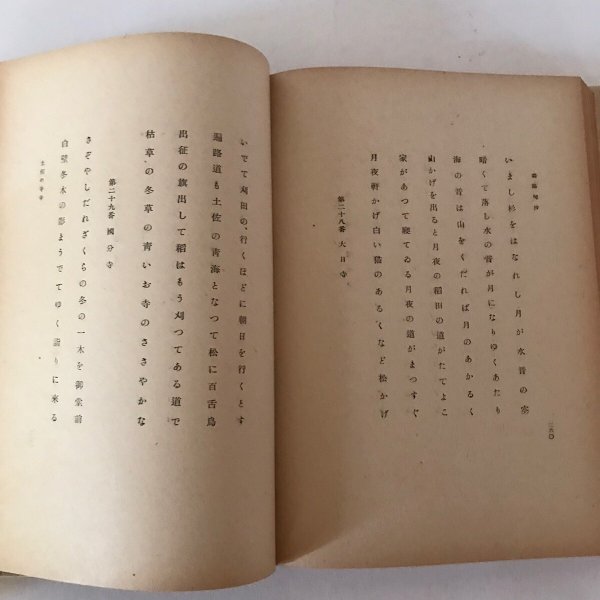 いまし杉をはなれし月が水音の空
暗くて落し水の音が月になりゆくあたり
海の音は山をくだれば月のあかるく
山かげを出ると月夜の稲田の道がたてよこ
家があつて寝てゐる月夜の道がまつすぐ
第二十八番 大日寺
月夜軒かげ白い猫のあるくなど松かげ
二六〇
いでて刈田の、行くほどに朝日を行くとす
遍路道も土佐の青海となつて松に百舌鳥
出征の旗出して稲はもう刈つてある道で
枯草の冬草の青いお寺のささやかな
第二十九番 國分寺
さぞやしだれざくらの冬の一木を御堂前
白壁冬木の影まうでてゆく詣りに来る